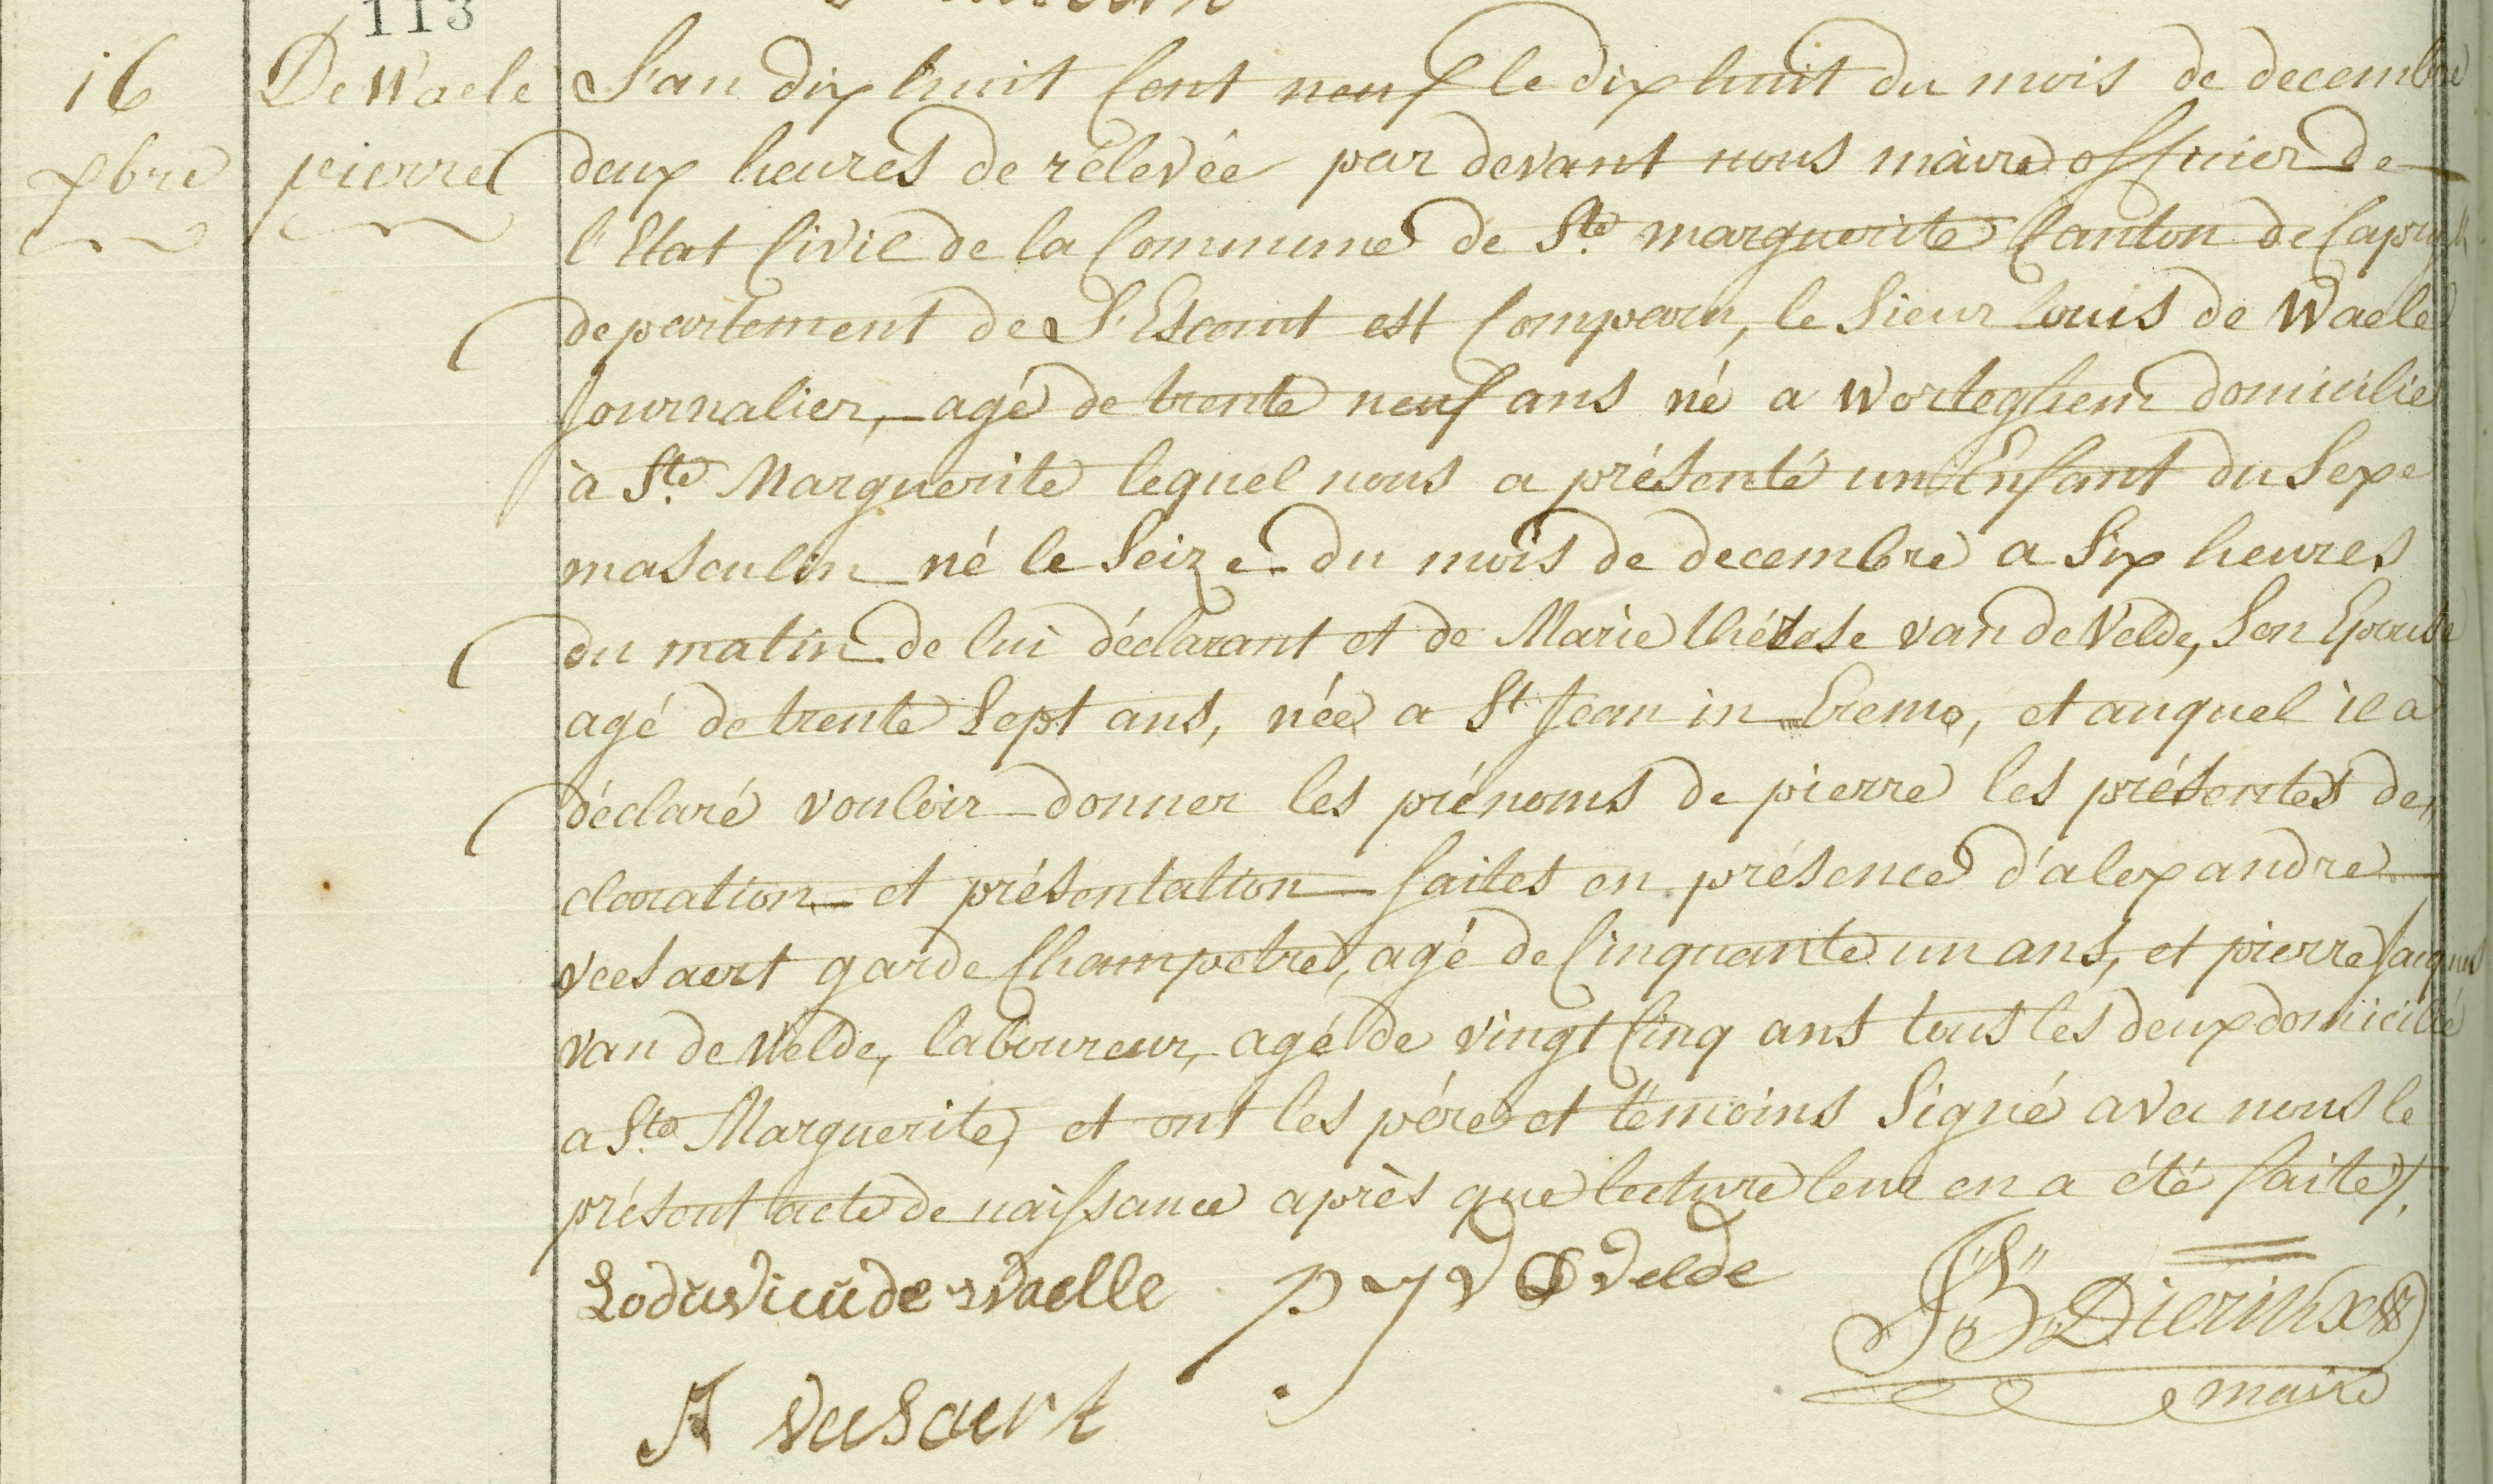 113
16
xbre
De Waele
pierre
L'an dix huit Cent neuf le dix huit du mois de decembre
deux heures de rélevée par devant nous màire officier de
l'Etat Civil de la Commune de Ste marguerite Canton de
departement de L'Escaut est Comparu, le Sieur louis de Waele
Journalier, agé de trente neuf ans né a Worteghem domicilié
à Ste Marguerite lequel nous a présenté un Enfant du Sexe
masculin né le Seize du mois de decembre a Six heures
du matin de lui déclarant et de Marie thérese van de Velde, Son Epouse
agé de trente Sept ans, née a St Jean in Eremo, et auquel il a
déclaré vouloir donner les prénoms de pierre les présentes de,,
claration et présentation faites en présence d'alexandre
veesaert garde Champetre, agé de Cinquante un ans, et pierre Jacques
van de Velde, laboureur, agé de vingt Cinq ans tous les deux domicilié
a Ste Marguerite, et ont les père et témoins Signé avec nous le
présent acte de naissance après que lecture leur en a été faite /.
Lodüvicüs de Waelle p j v d velde JB Dierickx
A Veesaert maire